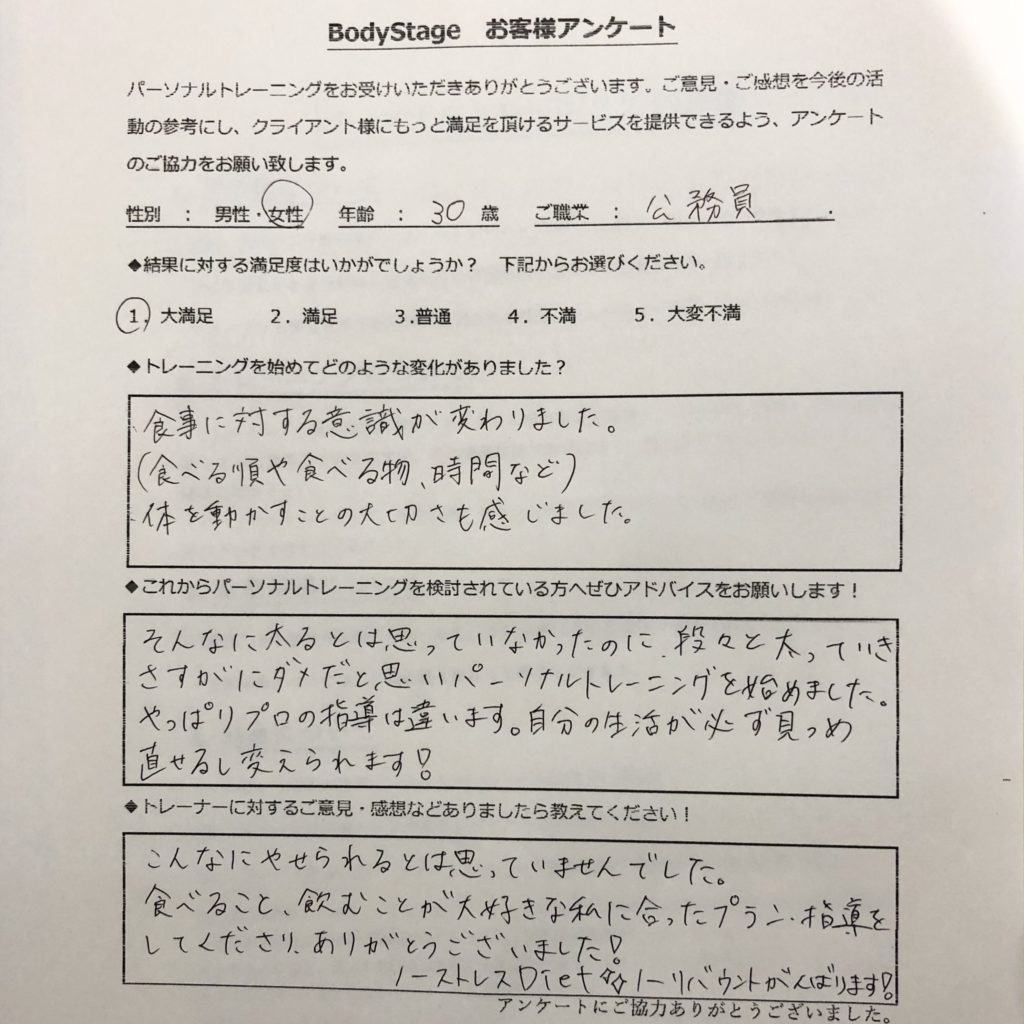 BodyStage お客様アンケート
パーソナルトレーニングをお受けいただきありがとうございます。ご意見・ご感想を今後の活
動の参考にし、クライアント様にもっと満足を頂けるサービスを提供できるよう、アンケート
のご協力をお願い致します。
性別 : 男性・女性 年齢 : 30 歳 ご職業 : 公務員
◆結果に対する満足度はいかがでしょうか? 下記からお選びください。
1. 大満足 2. 満足 3.普通 4. 不満 5. 大変不満
◆トレーニングを始めてどのような変化がありました?
食事に対する意識が変わりました。
(食べる順や食べる物、時間など)
体を動かすことの大切さも感じました。
◆これからパーソナルトレーニングを検討されている方へぜひアドバイスをお願いします!
そんなに太るとは思っていなかったのに、段々と太っていき
さすがにダメだと思いパーソナルトレーニングを始めました。
やっぱりプロの指導は違います。自分の生活が必ず見つめ
直せるし変えられます!
◆トレーナーに対するご意見・感想などありましたら教えてください!
こんなにやせられるとは思っていませんでした。
食べること、飲むことが大好きな私に合ったプラン・指導を
してくださり、ありがとうございました!
ノーストレスDiet☆☆ノーリバウントがんばります!
アンケートにご協力ありがとうございました。